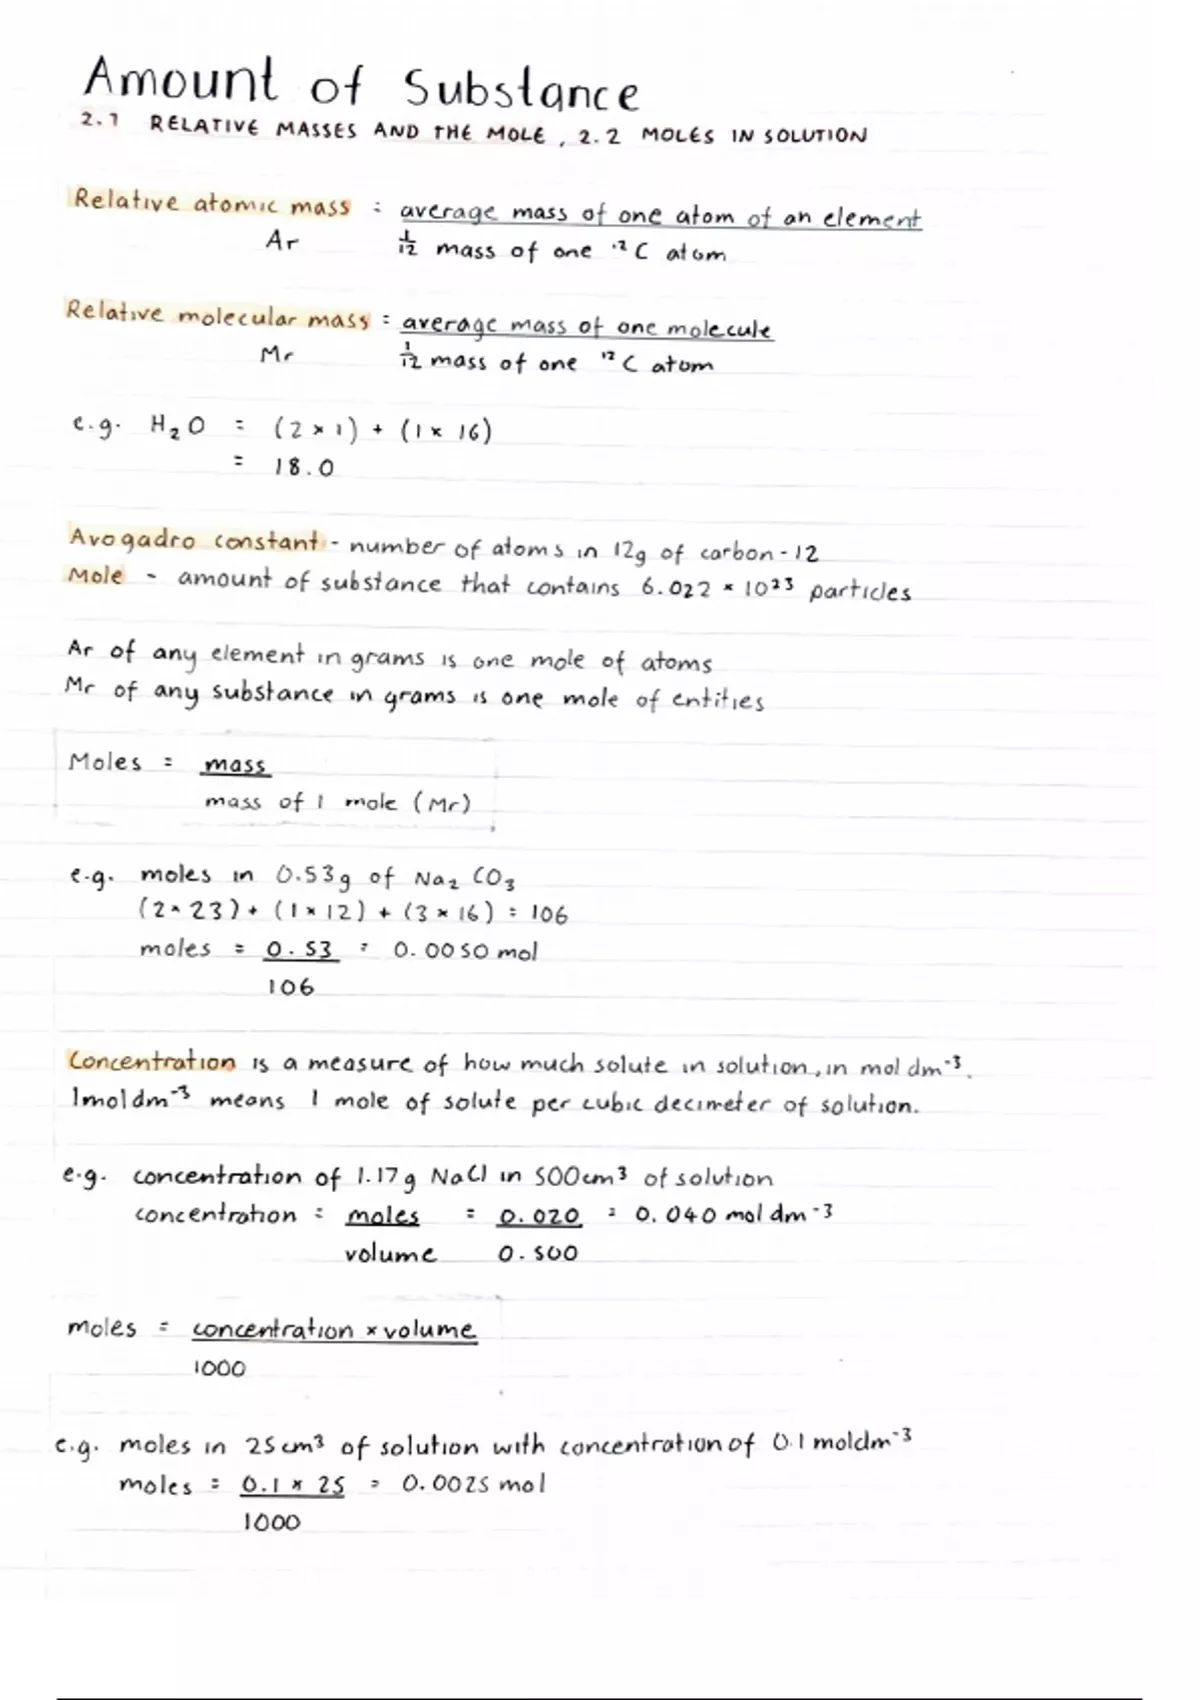 Amount of Substance
2.1 RELATIVE MASSES AND THE MOLE, 2.2 MOLES IN SOLUTION
Relative atomic mass : average mass of one atom of an element
Ar 1/12 mass of one ¹²C atom
Relative molecular mass = average mass of one molecule
Mr 1/12 mass of one ¹²C atom
e.g. H₂O = (2 × 1) + (1 × 16)
= 18.0
Avogadro constant - number of atoms in 12g of carbon-12
Mole - amount of substance that contains 6.022 × 10²³ particles
Ar of any element in grams is one mole of atoms
Mr of any substance in grams is one mole of entities
Moles = mass
mass of 1 mole (Mr)
e.g. moles in 0.53g of Na₂CO₃
(2 × 23) + (1 × 12) + (3 × 16) = 106
moles = 0.53 = 0.0050 mol
106
Concentration is a measure of how much solute in solution, in mol dm⁻³.
1mol dm⁻³ means 1 mole of solute per cubic decimeter of solution.
e.g. concentration of 1.17g NaCl in 500cm³ of solution
concentration = moles = 0.020 = 0.040 mol dm⁻³
volume 0.500
moles = concentration × volume
1000
e.g. moles in 25cm³ of solution with concentration of 0.1 moldm⁻³
moles = 0.1 × 25 = 0.0025 mol
1000